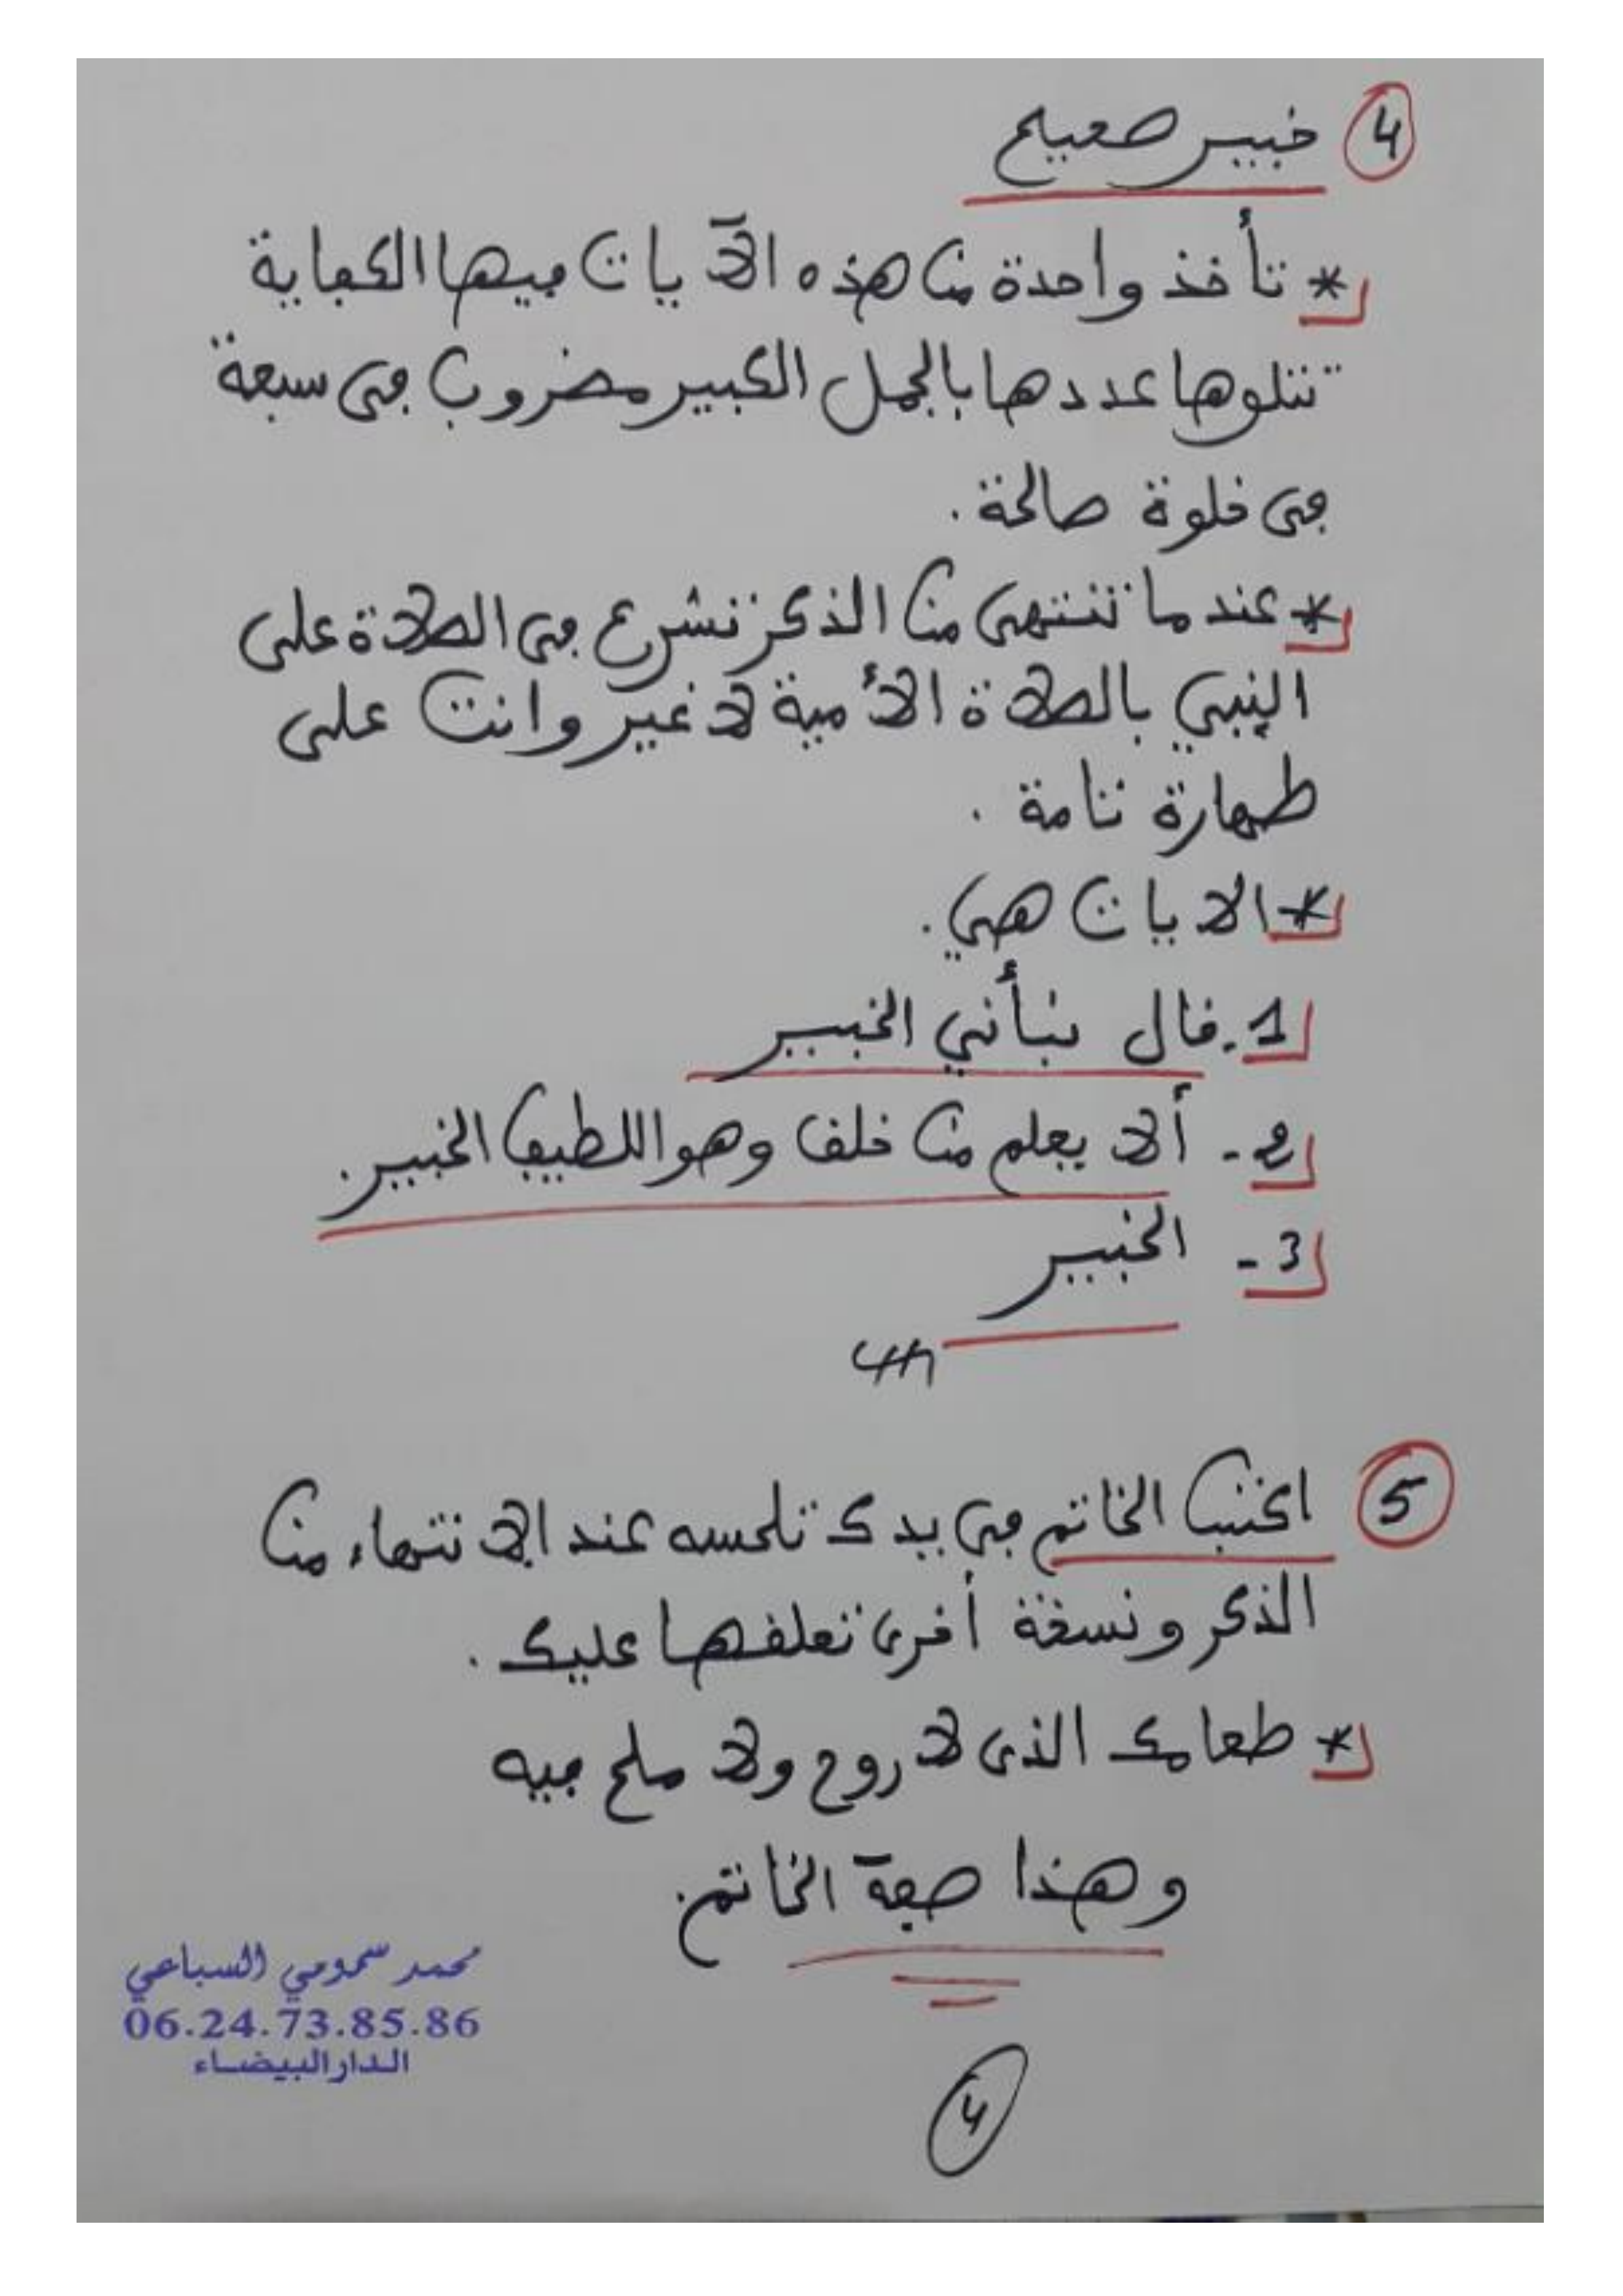 4 خبير صحيح
* تأخذ واحدة من هذه الآيات فيها الكفاية
تتلوها عددها بالجمل الكبير مضروب في سبعة
في خلوة صالحة.
* عندما تنتهي من الذكر تشرع في الصلاة على
النبي بالصلاة الأمية لا غير وانت على
طهارة تامة.
* الايات هي.
1. قال نبأني الخبير
2- ألا يعلم من خلق وهو اللطيف الخبير.
3- الخبير
5 اكتب الخاتم في يدك تلحسه عند الانتهاء من
الذكر ونسخة أخرى تعلقها عليك.
* طعامك الذي لا روح ولا ملح فيه
وهذا صفة الخاتم.
محمد سمومي السباعي
06.24.73.85.86
الدار البيضاء
4